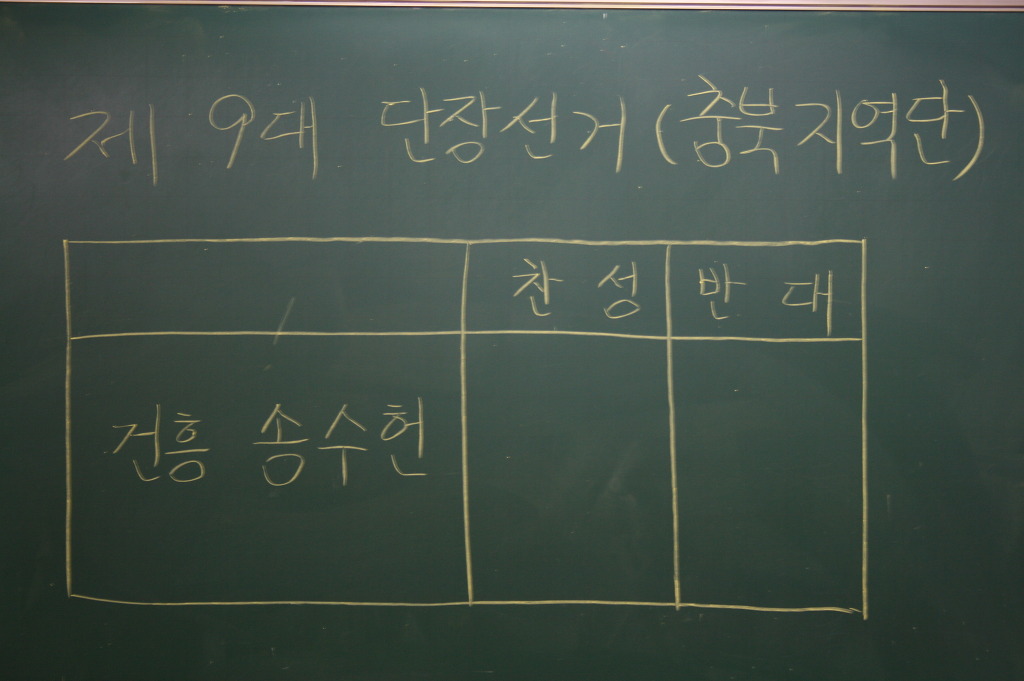 제 9대 단장선거(충북지역단)
찬 성 반 대
건흥 송수헌